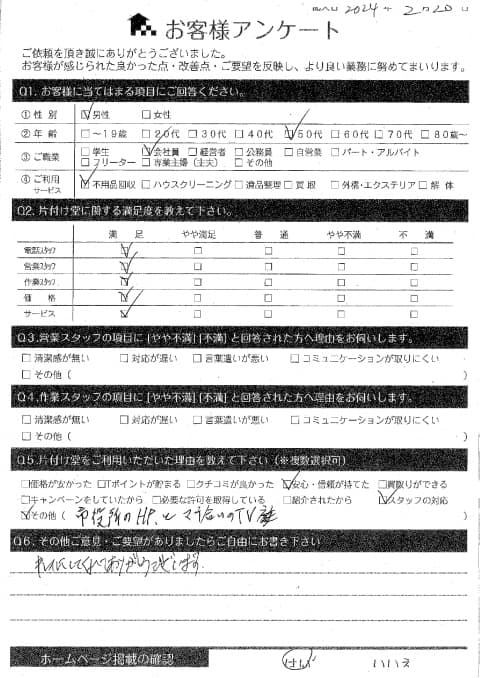 2024年 2月20日
お客様アンケート
ご依頼を頂き誠にありがとうございました。
お客様が感じられた良かった点・改善点・ご要望を反映し、より良い業務に努めてまいります。
Q1. お客様に当てはまる項目にご回答ください。
① 性 別 ☑男性 □女性
② 年 齢 □～19歳 □20代 □30代 □40代 ☑50代 □60代 □70代 □80歳～
③ ご職業 □学生 ☑会社員 □経営者 □公務員 □自営業 □パート・アルバイト
□フリーター □専業主婦（主夫） □その他
④ ご利用サービス ☑不用品回収 □ハウスクリーニング □遺品整理 □買 取 □外構・エクステリア □解 体
Q2. 片付け堂に関する満足度を教えて下さい。
満 足 やや満足 普 通 やや不満 不 満
電話スタッフ ☑ □ □ □ □
営業スタッフ ☑ □ □ □ □
作業スタッフ ☑ □ □ □ □
価 格 ☑ □ □ □ □
サービス ☑ □ □ □ □
Q3.営業スタッフの項目に［やや不満］［不満］と回答された方へ理由をお伺いします。
□清潔感が無い □対応が遅い □言葉遣いが悪い □コミュニケーションが取りにくい
□その他（ ）
Q4.作業スタッフの項目に［やや不満］［不満］と回答された方へ理由をお伺いします。
□清潔感が無い □対応が遅い □言葉遣いが悪い □コミュニケーションが取りにくい
□その他（ ）
Q5.片付け堂をご利用いただいた理由を教えて下さい（※複数選択可）
□価格が安かった □Tポイントが貯まる □クチコミが良かった ☑安心・信頼が持てた □買取りができる
□キャンペーンをしていたから □必要な許可を取得している □紹介されたから ☑スタッフの対応
☑その他（ 市役所のHP、と のTV
Q6. その他ご意見・ご要望がありましたらご自由にお書き下さい
キレイにしてくれてありがとうございます。
ホームページ掲載の確認 はい いいえ